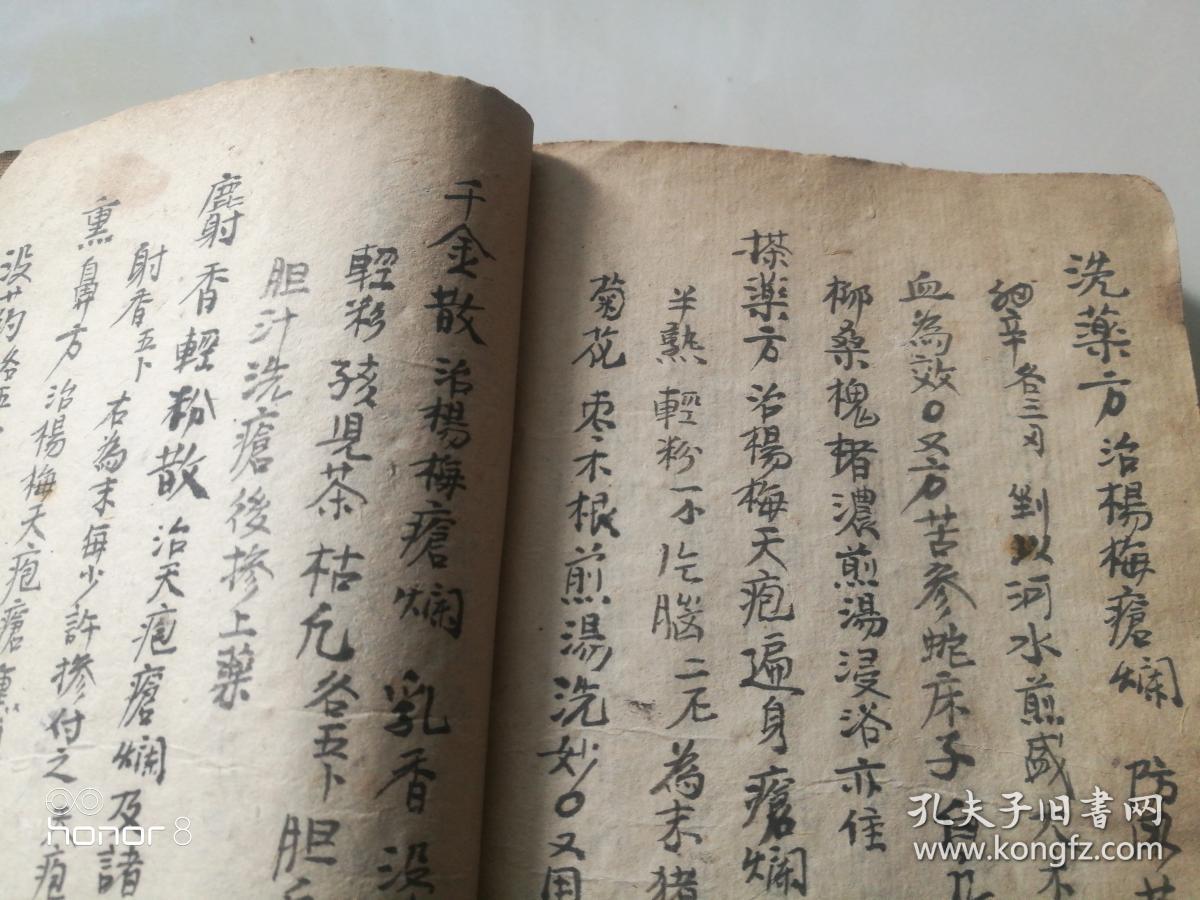 洗薬方治楊梅瘡爛 防風
細辛各三刄 剉以河水煎盛
血為效〇又方苦参蛇床子
柳桑槐楮濃煎湯浸浴亦住
搽薬方治楊梅天疱遍身瘡爛
半熟 輕粉一不 片腦二尺為末猪
菊花 枣木根煎湯洗妙〇又用
千金散 治楊梅瘡爛 乳香 没
輕粉 孩児茶 枯凢各五卜 胆
胆汁洗瘡後摻上藥
麝香輕粉散 治天疱瘡爛及諸
射香五卜 右為末每少許摻付之
熏鼻方 治楊梅天疱瘡
没药各五
孔夫子旧书网
www.kongfz.com
honor 8